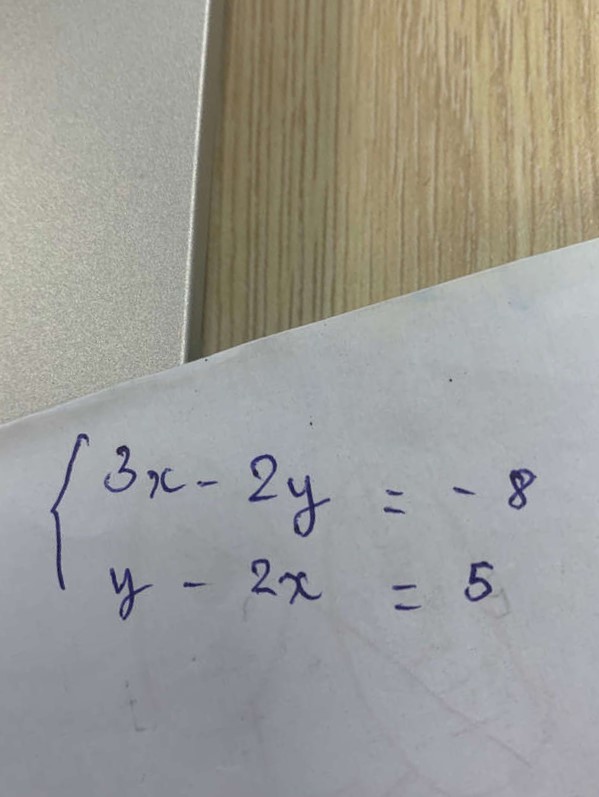 3x - 2y = - 8
y - 2x = 5